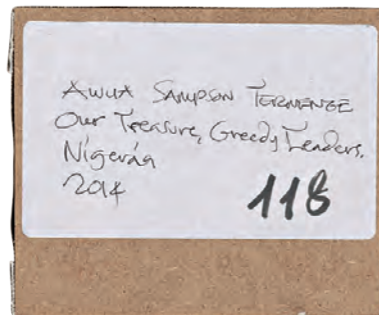 AWUA SAMPSON TERMENGE
Our Treasure, Greedy Leaders.
Nigeria
2014
118